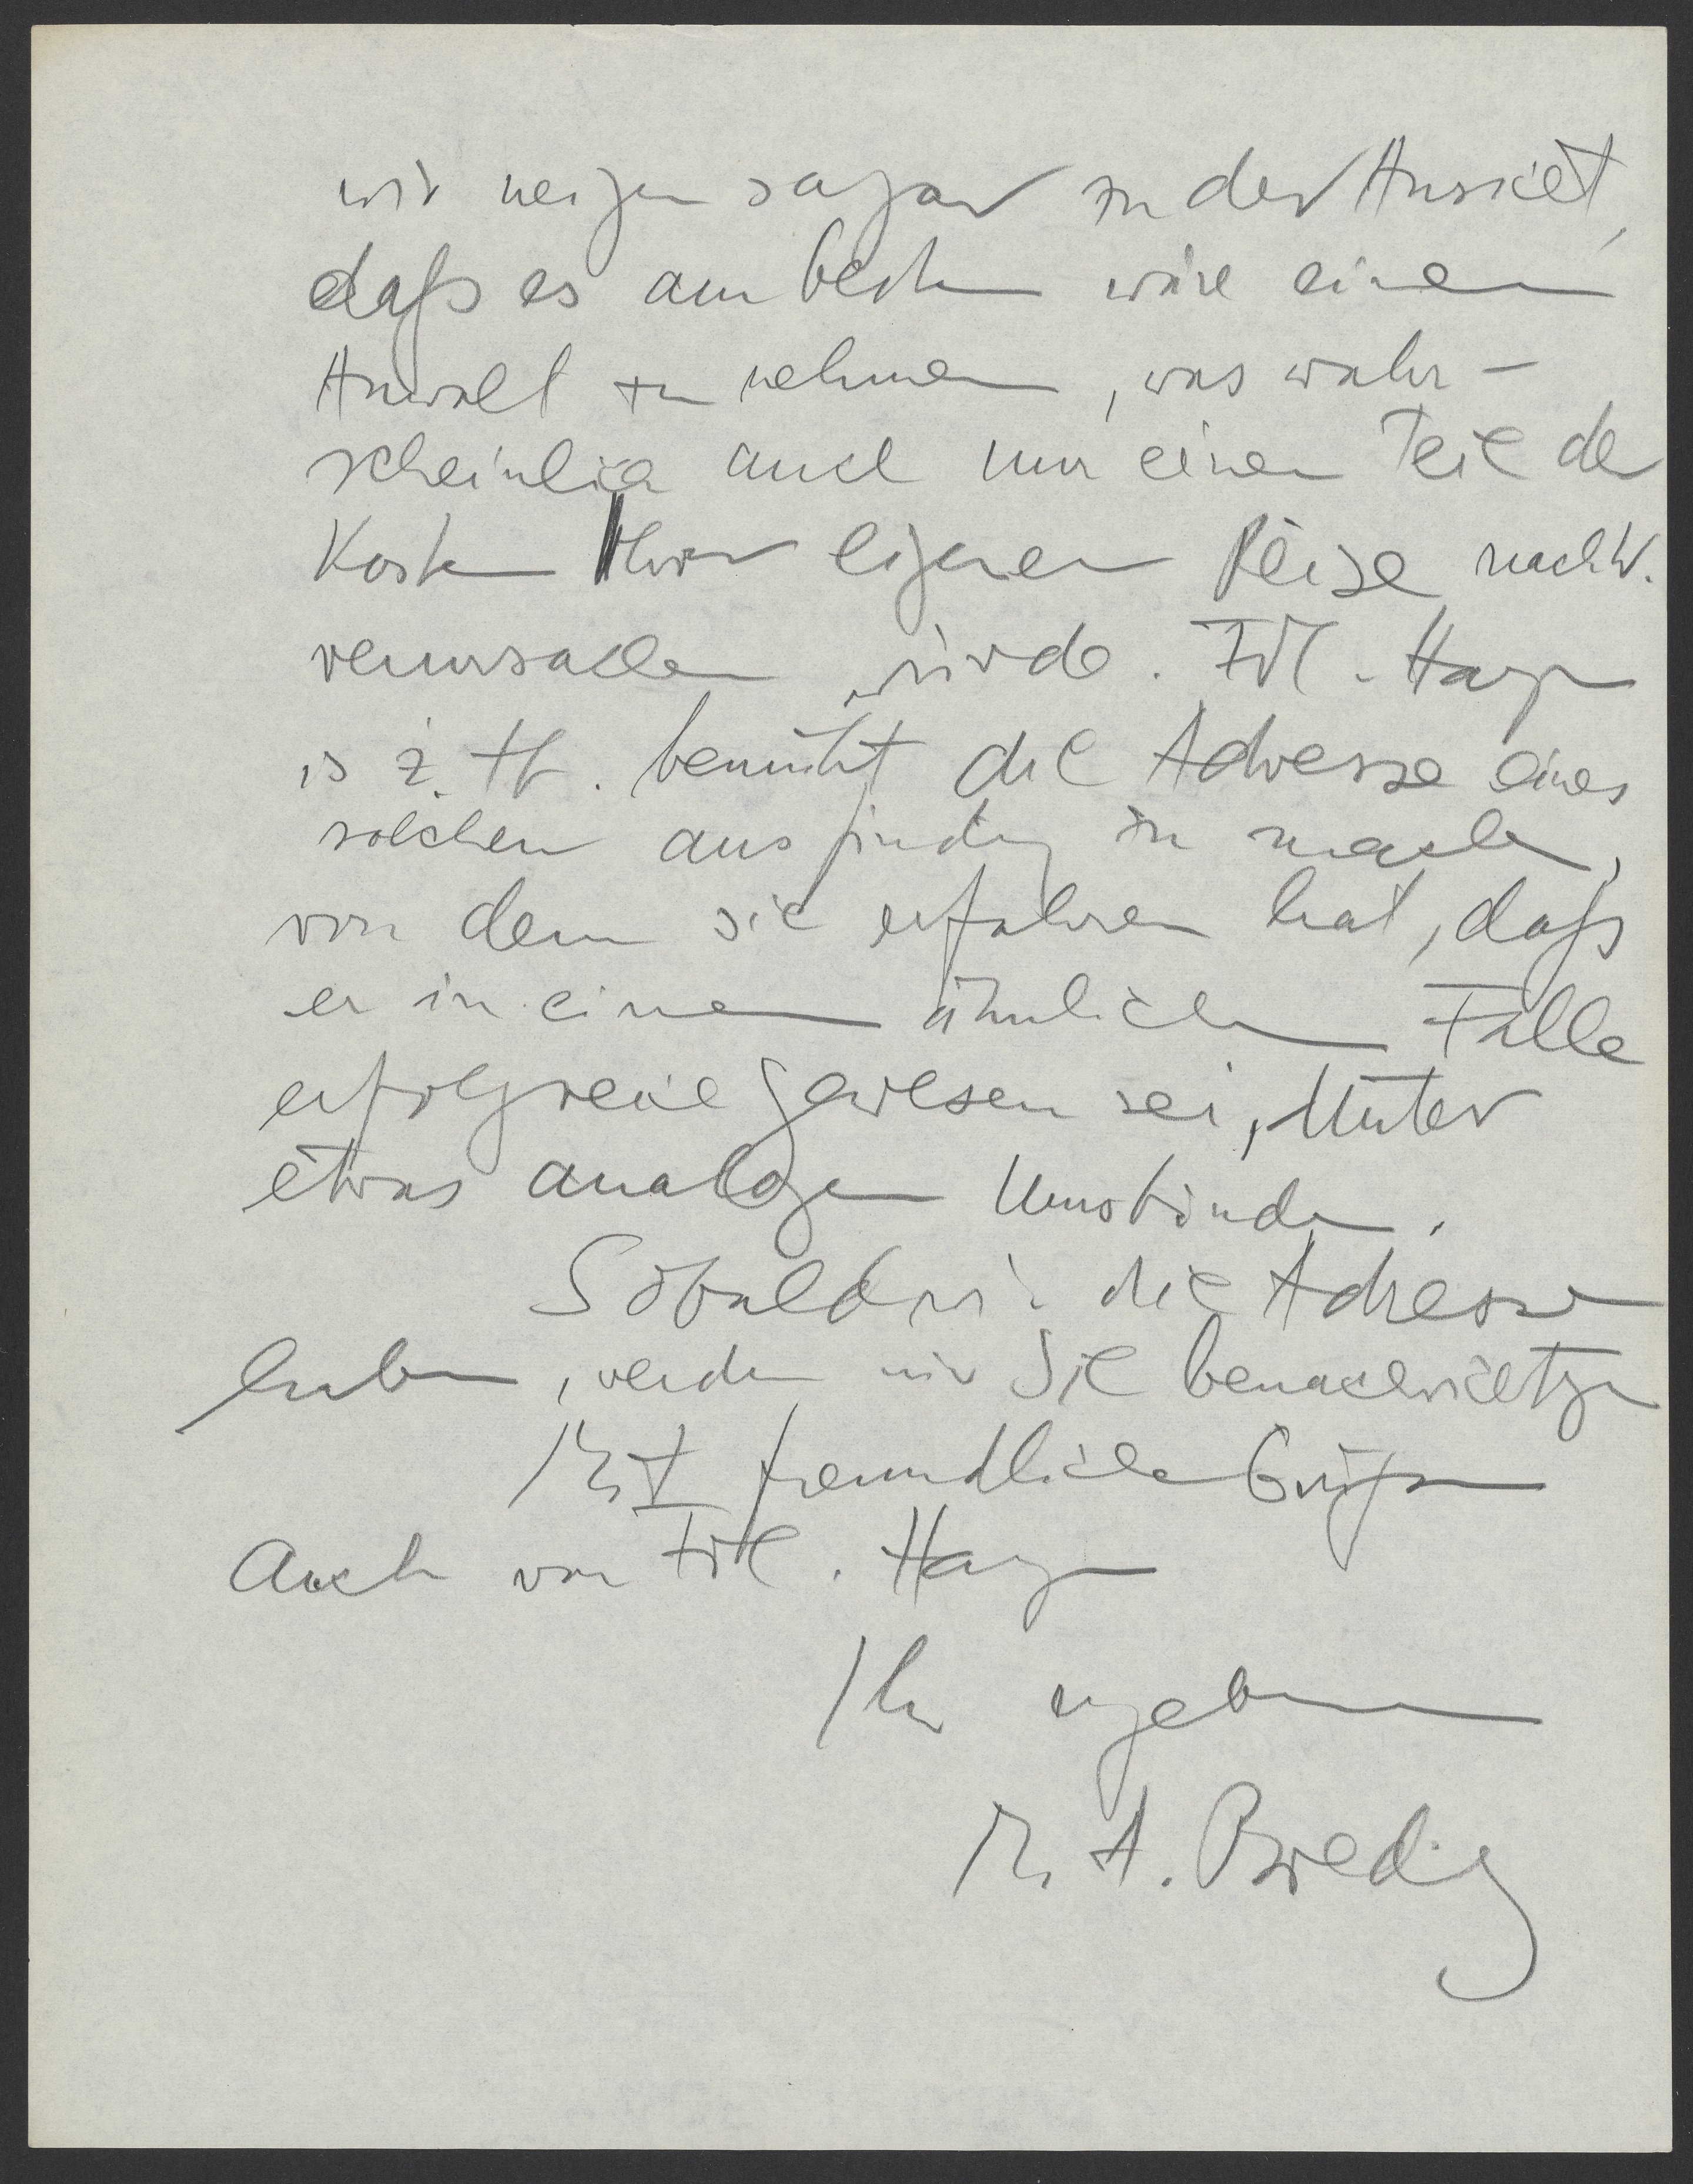 wir neigen sogar zu der Ansicht,
daß es am besten wäre einen
Anwalt zu nehmen, was wahr-
scheinlich auch nur einen Teil der
Kosten Ihrer eigenen Reise nach W.
verursachen würde. Frl. Hagen
is z. Zt. bemüht die Adresse eines
solchen ausfindig zu machen,
von dem sie erfahren hat, daß
er in einem ähnlichen Falle
erfolgreich gewesen sei, Unter
etwas analogen Umständen.
Sobald wir die Adresse
haben, werden wir Sie benachrichtigen
Mit freundlichen Grüßen
Auch von Frl. Hagen
Ihr ergebener
M. A. Bredig